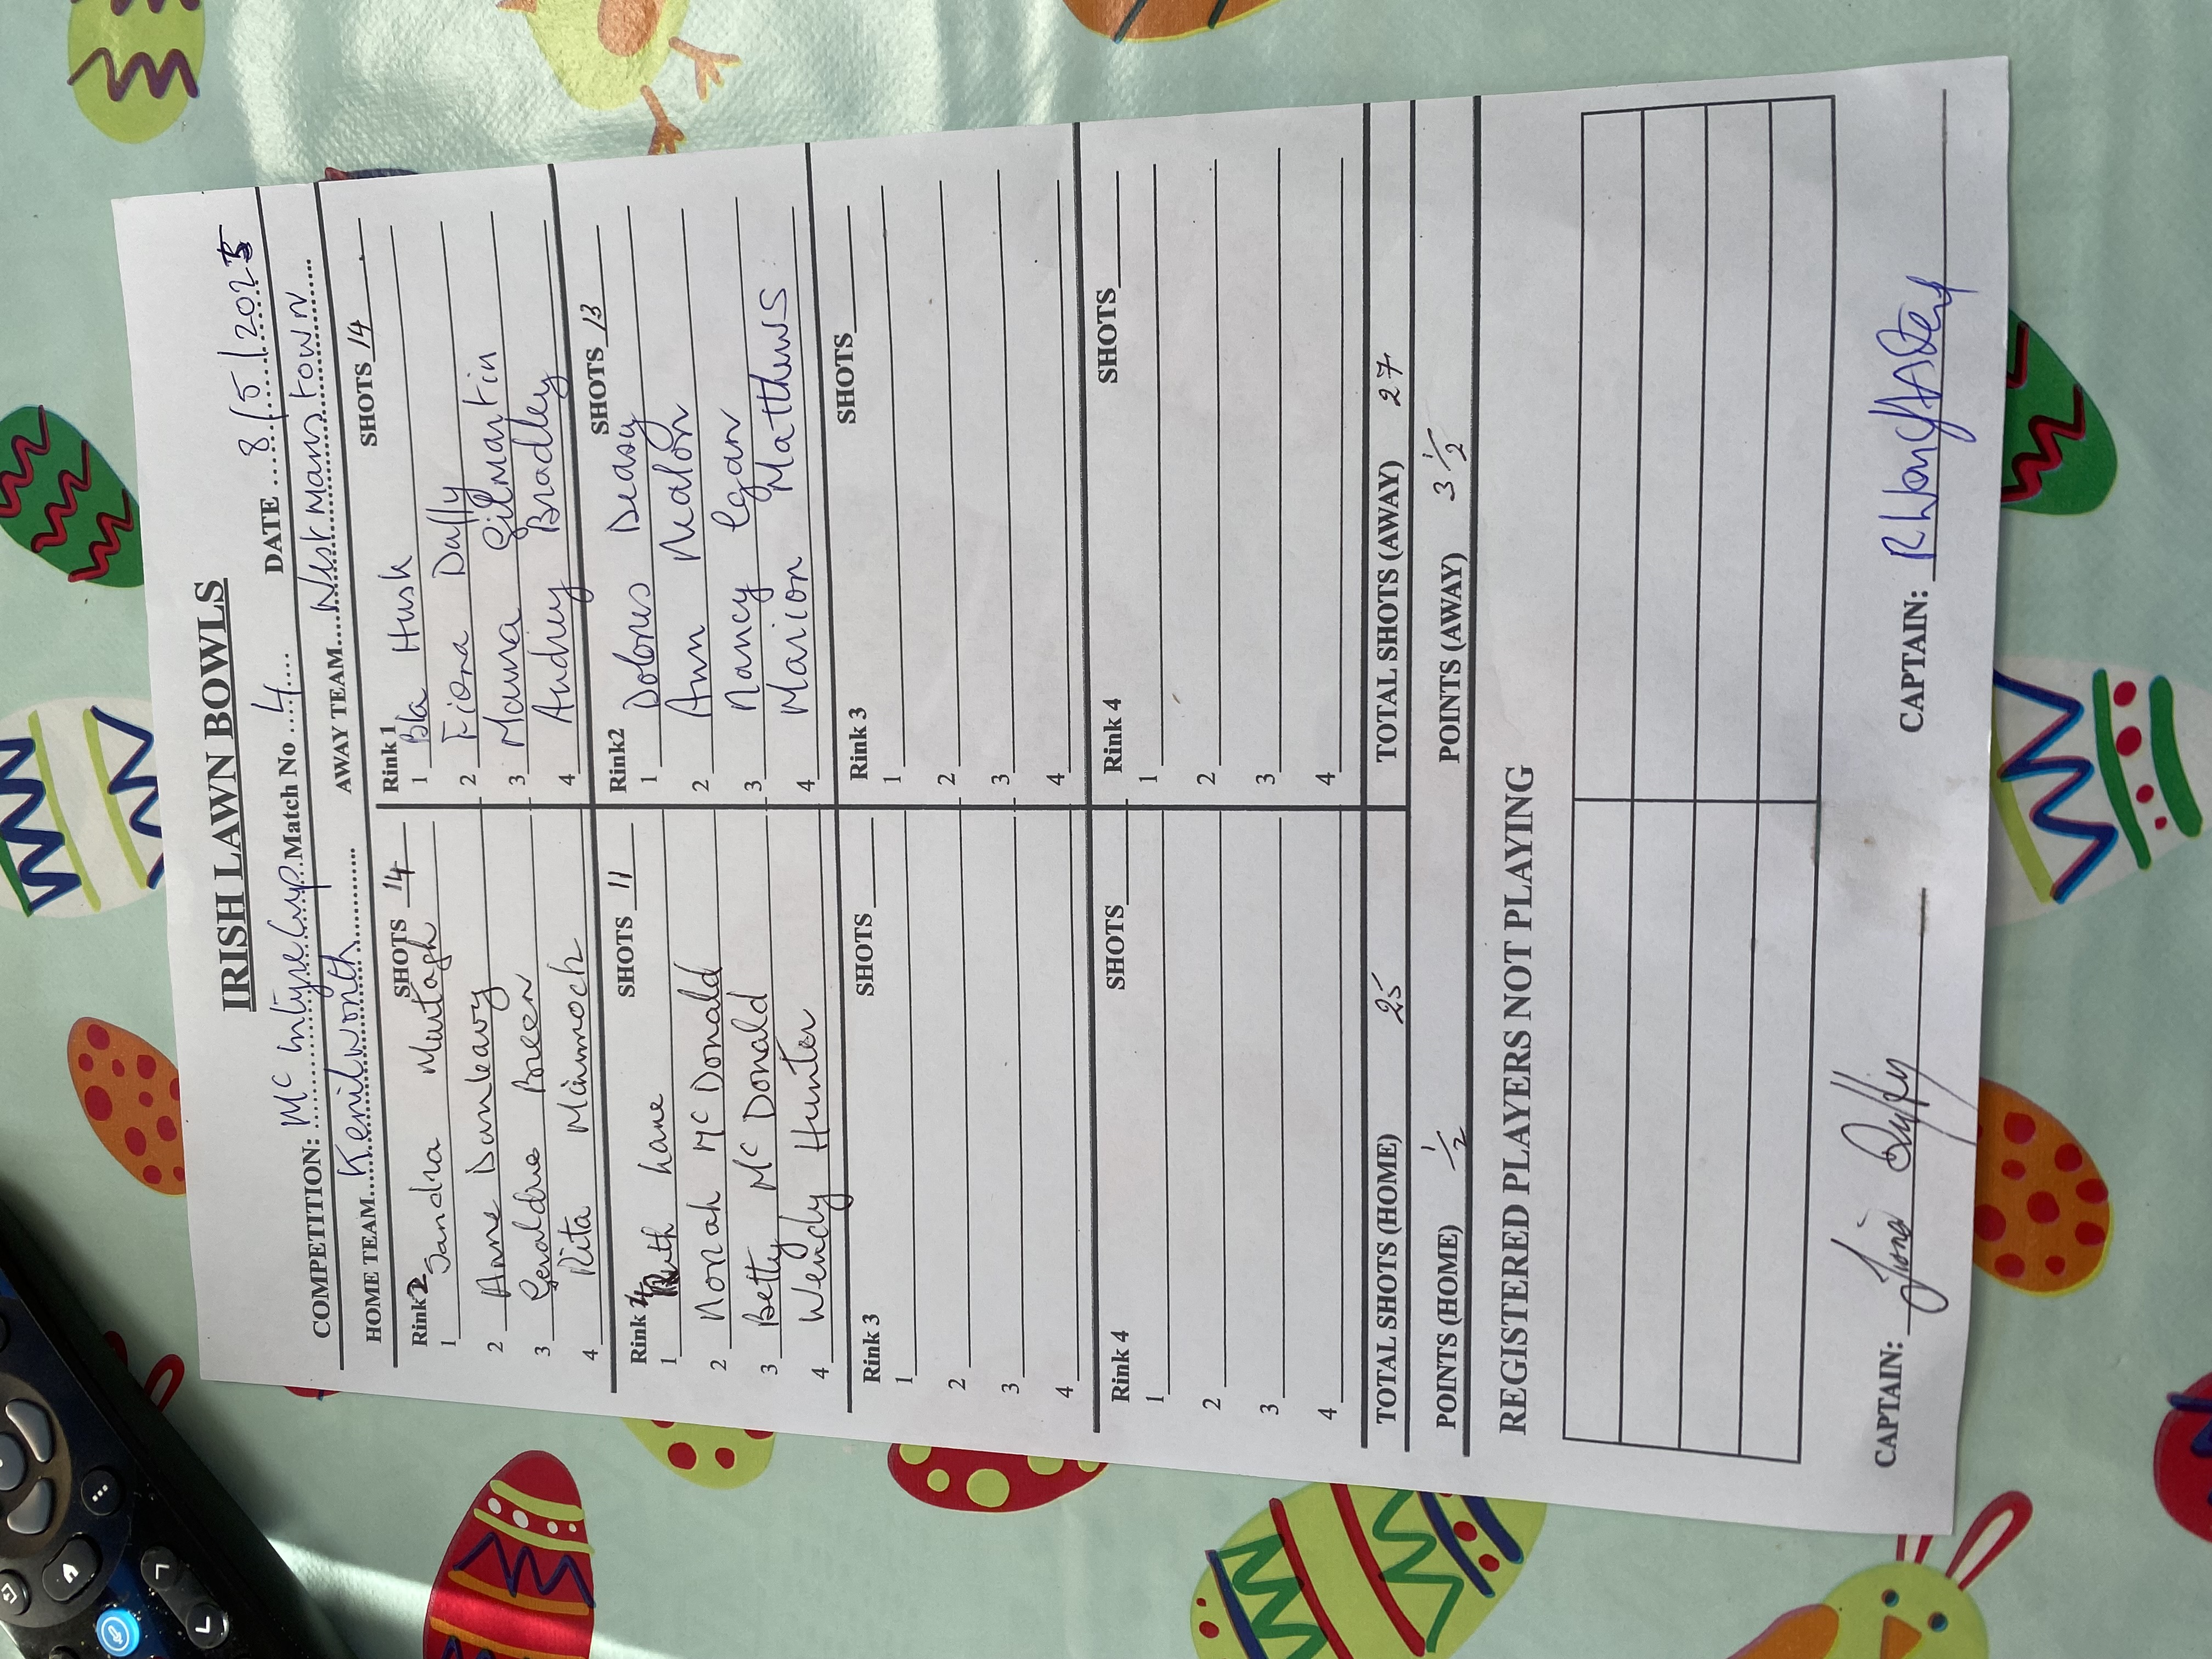 IRISH LAWN BOWLS
COMPETITION: Mc Intyre Cup Match No 4 DATE 8/5/2025
HOME TEAM Kenilworth AWAY TEAM Westmanstown
Rink 2 SHOTS 14
1 Sandra Murtagh
2 Anne Dunleavy
3 Geraldine Breen
4 Rita Minnock
Rink 1 SHOTS 14
1 Bla Husk
2 Fiona Dally
3 Maura Gilmartin
4 Audrey Bradley
Rink 4 SHOTS 11
1 Ruth Lane
2 Norah McDonald
3 Betty McDonald
4 Wendy Hunter
Rink2 SHOTS 13
1 Dolores Deasy
2 Ann Nealon
3 Nancy Egan
4 Marion Matthews
Rink 3 SHOTS
1
2
3
4
Rink 3 SHOTS
1
2
3
4
Rink 4 SHOTS
1
2
3
4
Rink 4 SHOTS
1
2
3
4
TOTAL SHOTS (HOME) 25 TOTAL SHOTS (AWAY) 27
POINTS (HOME) 1/2 POINTS (AWAY) 3 1/2
REGISTERED PLAYERS NOT PLAYING
CAPTAIN: CAPTAIN: